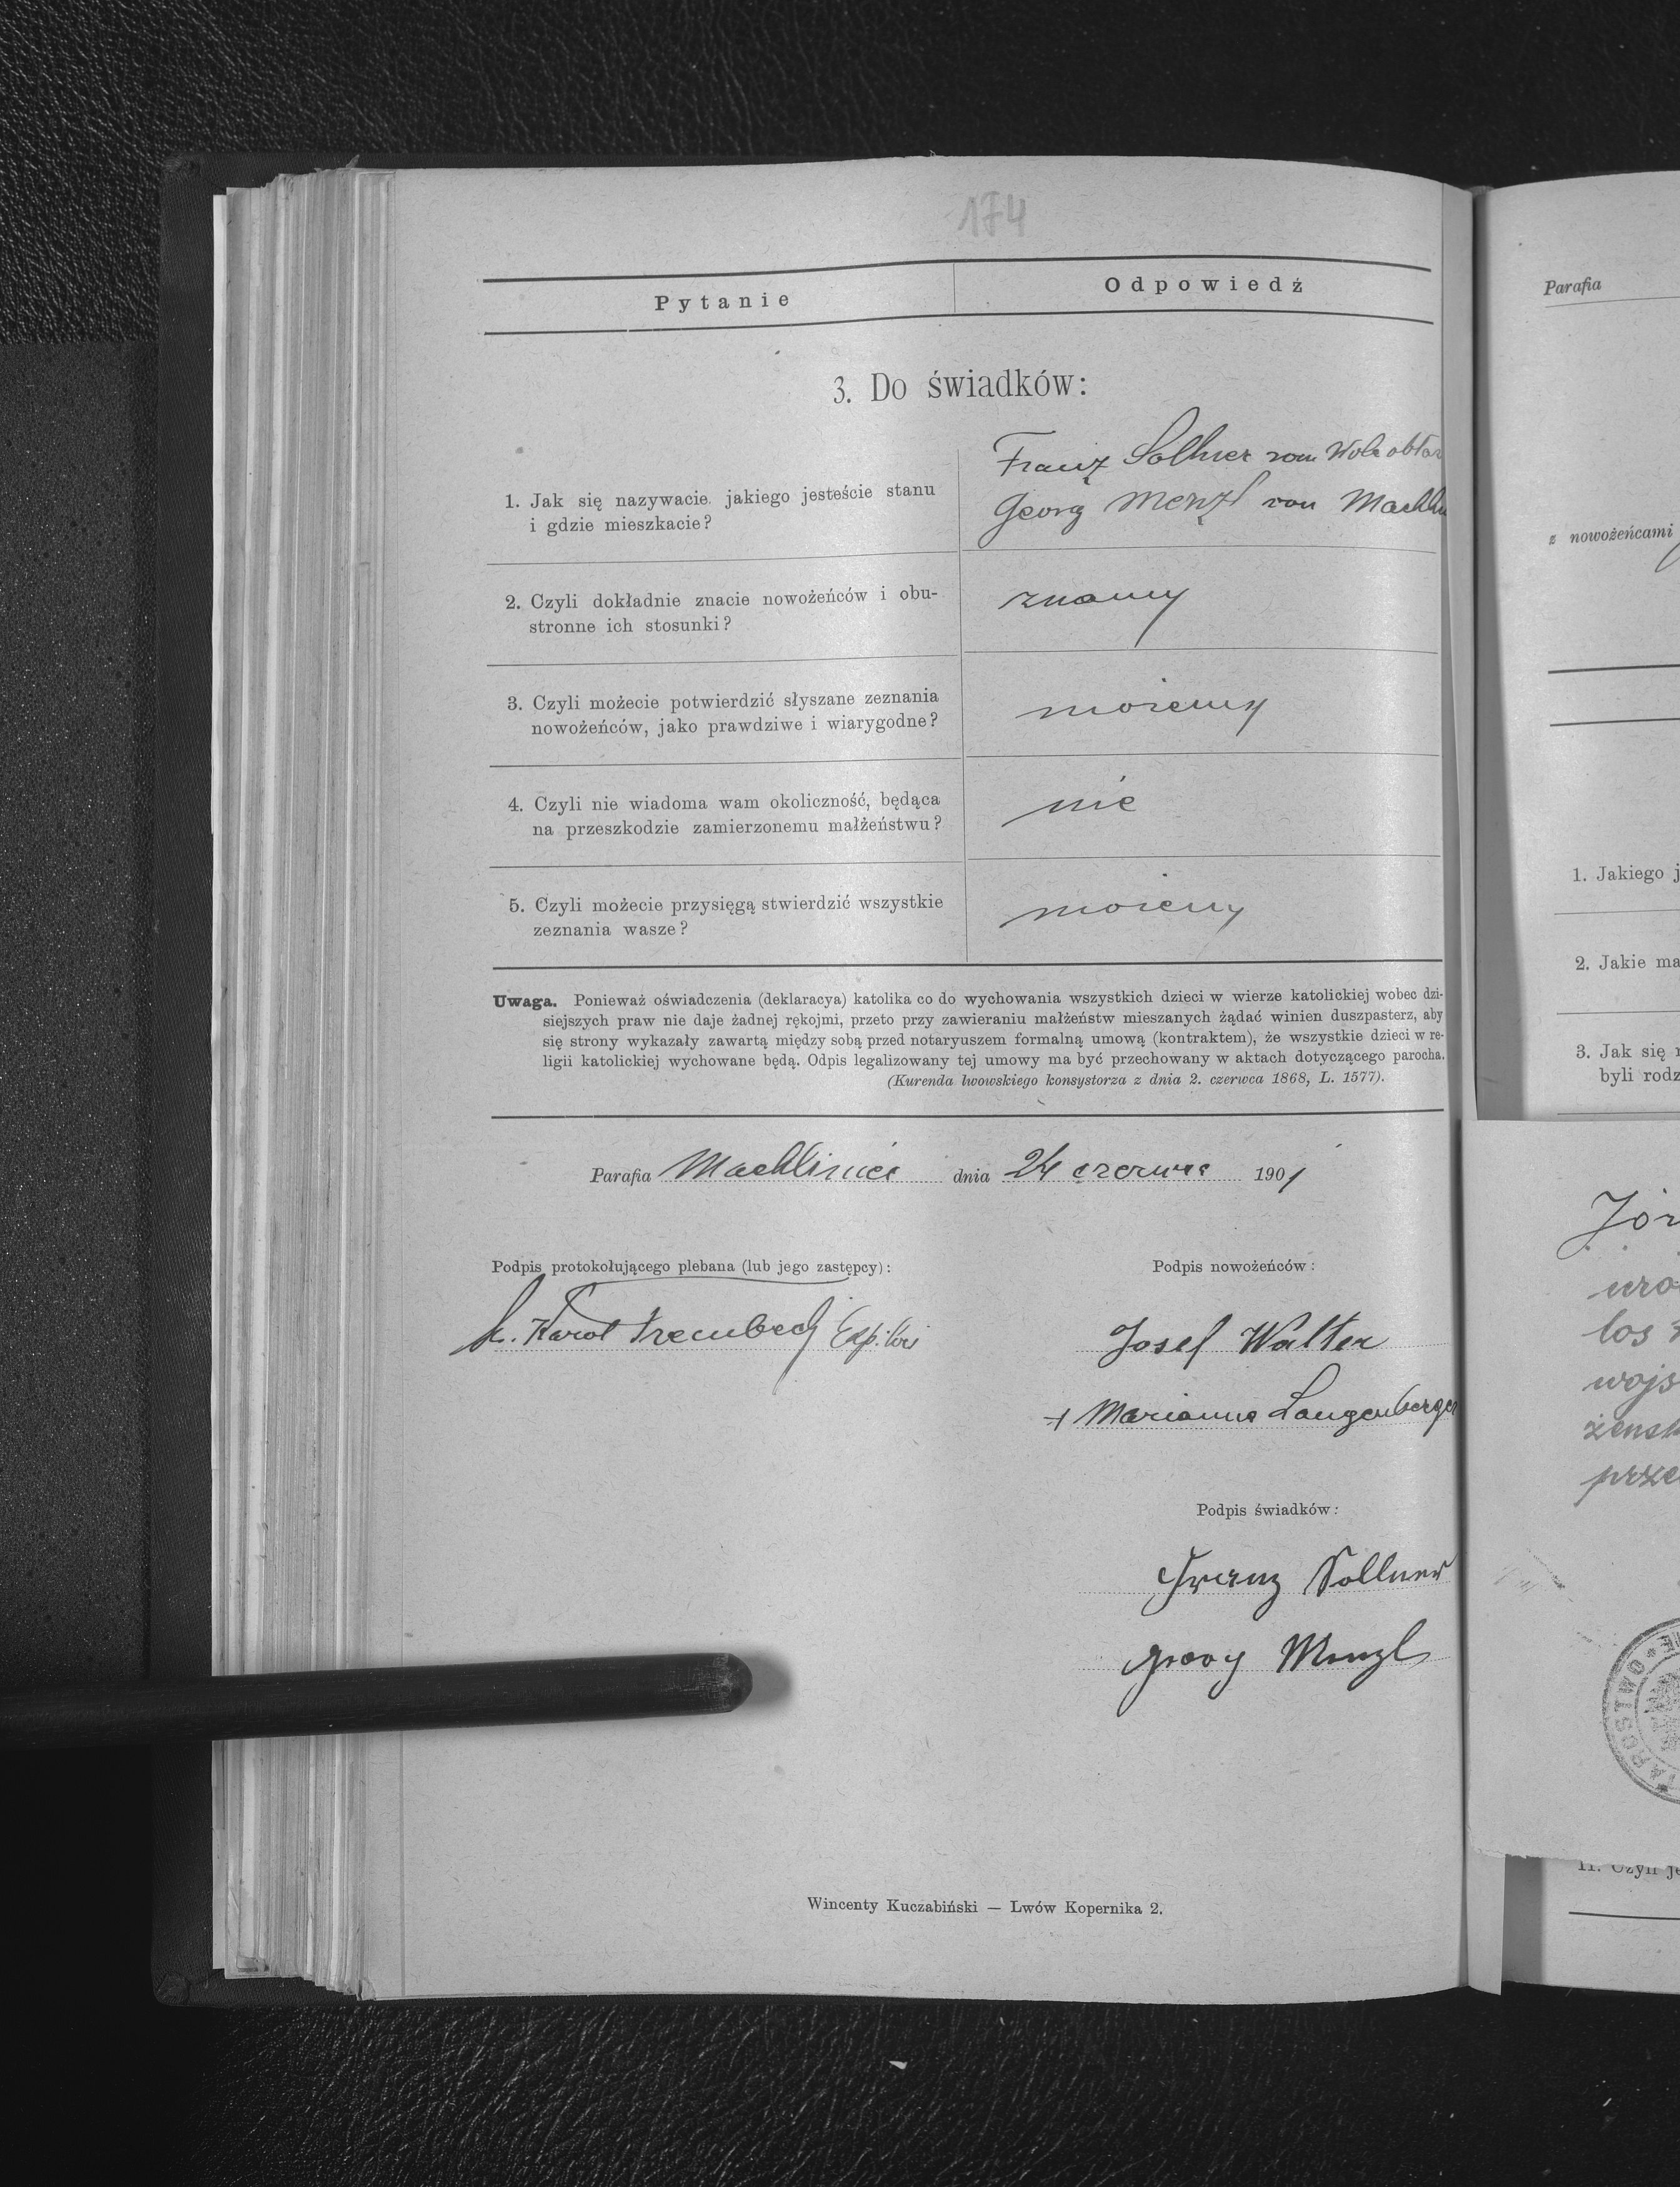 174
Pytanie
Odpowiedź
3. Do świadków:
1. Jak się nazywacie, jakiego jesteście stanu
i gdzie mieszkacie?
Franz Sollner von Wola obłaz
Georg Menzl von Machlin
2. Czyli dokładnie znacie nowożeńców i obu-
stronne ich stosunki?
znamy
3. Czyli możecie potwierdzić słyszane zeznania
nowożeńców, jako prawdziwe i wiarygodne?
możemy
4. Czyli nie wiadoma wam okoliczność, będąca
na przeszkodzie zamierzonemu małżeństwu?
nie
5. Czyli możecie przysięgą stwierdzić wszystkie
zeznania wasze?
możemy
Uwaga. Ponieważ oświadczenia (deklaracya) katolika co do wychowania wszystkich dzieci w wierze katolickiej wobec dzi-
siejszych praw nie daje żadnej rękojmi, przeto przy zawieraniu małżeństw mieszanych żądać winien duszpasterz, aby
się strony wykazały zawartą między sobą przed notaryuszem formalną umową (kontraktem), że wszystkie dzieci w re-
ligii katolickiej wychowane będą. Odpis legalizowany tej umowy ma być przechowany w aktach dotyczącego parocha.
(Kurenda lwowskiego konsystorza z dnia 2. czerwca 1868, L. 1577).
Parafia Machliniec dnia 24 czerwca 1901
Podpis protokołującego plebana (lub jego zastępcy):
Podpis nowożeńców:
X. Karol
Josef Walter
+ Marianna Langenberger
Podpis świadków:
Franz Sollner
Georg Menzl
Wincenty Kuczabiński — Lwów Kopernika 2.
Parafia
z nowożeńcami
1. Jakiego j
2. Jakie ma
3. Jak się
byli rodz
Józ
uro
los
wojs
żeńsk
prze
11. Czyli je